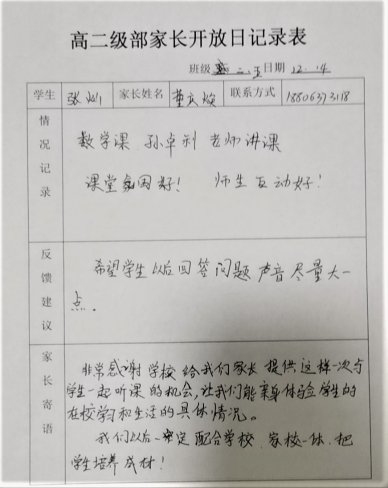 高二级部家长开放日记录表
班级 二、五 日期 12.14
学生 张灿 家长姓名 董庆焕 联系方式
情况记录
数学课 孙卓利 老师讲课
课堂氛围好! 师生互动好!
反馈建议
希望学生以后回答问题声音尽量大一
点。
家长寄语
非常感谢学校给我们家长提供这样一次与
学生一起听课的机会,让我们能亲身体验学生的
在校学习和生活的具体情况。
我们以后一定配合学校,家校一体,把
学生培养成材!